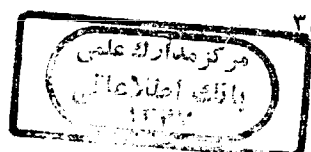 ۳
مرکز مدارک علمی
بانک اطلاعاتی